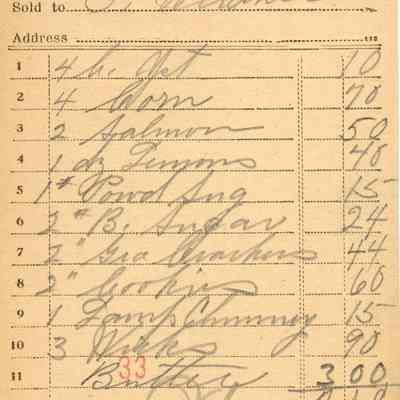 Sold to
Address
1 4 10
2 4 Corn 70
3 2 Salmon 50
4 1 dz Lemons 40
5 1# Powd Sug 15
6 2 " B. Sugar 24
7 2 " Gra Crackers 44
8 2" Cookies 60
9 1 Lamp Chimney 15
10 3 Wicks 90
11 Butter 3 00
33